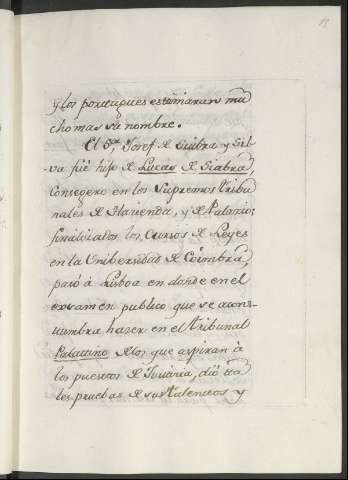 y los portugues estimaran mu
cho mas su nombre.
El Sr. Josef de Seabra y Sil
-va fue hijo de Lucas de Siabra,
consegero en los Supremos tribu
nales de Hacienda, y de Palacio;
finalizados los Cursos de Leyes
en la Unibersidad de Coimbra,
pasó á Lisboa en donde en el
exsamen publico que se acos-
tumbra haser en el tribunal
Palatino de los que aspiran à
los puestos de Justicia, dió ta
les pruebas de sus talentos y